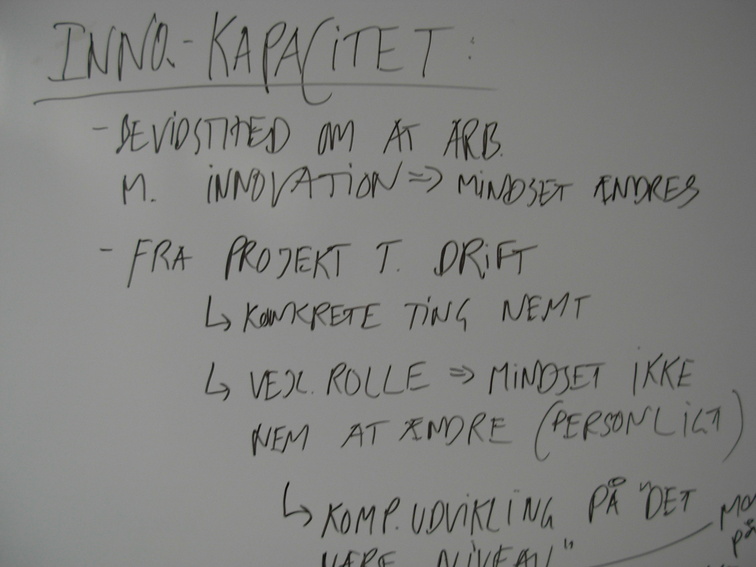 INNO.-KAPACITET:
- BEVIDSTHED OM AT ARB.
M. INNOVATION => MINDSET ÆNDRES
- FRA PROJEKT T. DRIFT
↳ KONKRETE TING NEMT
↳ ROLLE => MINDSET IKKE
NEM AT ÆNDRE (PERSONLIGT)
↳ KOMP.UDVIKLING PÅ "DET
NIVEAU"
på